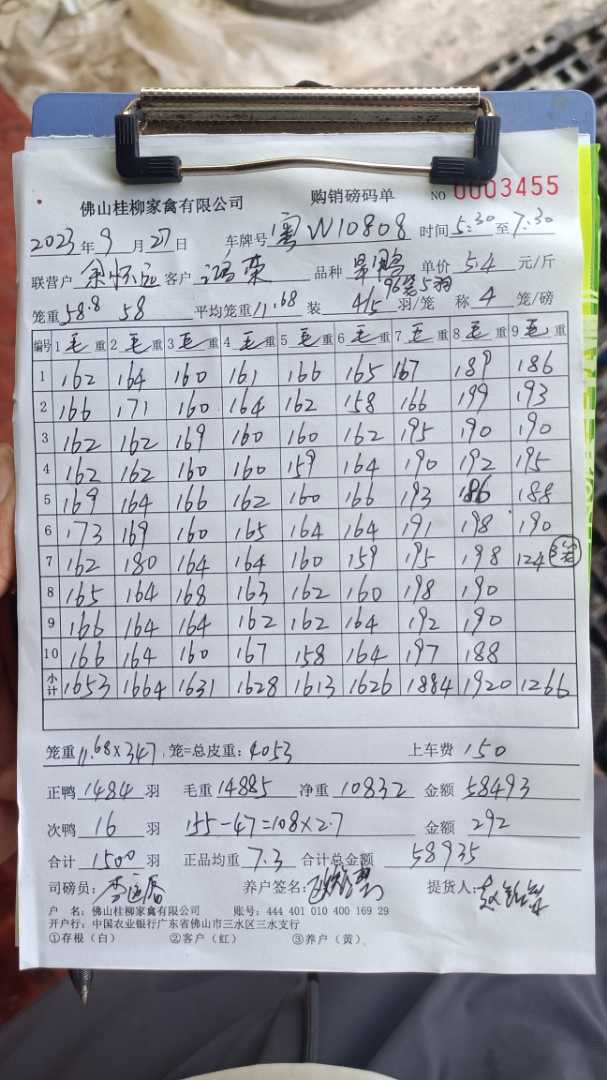 佛山桂柳家禽有限公司 购销磅码单 NO 0003455
2023年9月27日 车牌号 粤W10808 时间 5:30 至 7:30
联营户 客户 鸿荣 品种 单价 5.4 元/斤
96笼5羽
笼重 58.8 58 平均笼重 11.68 装 4/5 羽/笼 称 4 笼/磅
编号 1 毛重 2 毛重 3 毛重 4 毛重 5 毛重 6 毛重 7 毛重 8 毛重 9 毛重
1 162 164 160 161 166 165 167 189 186
2 166 171 160 164 162 158 166 199 193
3 162 162 169 160 160 162 195 190 190
4 162 162 160 160 159 164 190 192 195
5 169 164 166 162 160 166 193 186 188
6 173 169 160 165 164 164 191 198 190
7 162 180 164 164 160 159 195 198 124
8 165 164 168 163 162 160 198 190
9 166 164 164 162 162 164 192 190
10 166 164 160 167 158 164 197 188
小计 1653 1664 1631 1628 1613 1626 1884 1920 1266
笼重 11.68×347 笼=总皮重: 4053 上车费 150
正鸭 1484 羽 毛重 14885 净重 10832 金额 58493
次鸭 16 羽 155-47=108×2.7 金额 292
合计 1500 羽 正品均重 7.3 合计总金额 58935
司磅员: 养户签名: 提货人:
户 名: 佛山桂柳家禽有限公司 账号: 444 401 010 400 169 29
开户行: 中国农业银行广东省佛山市三水区三水支行
①存根（白） ②客户（红） ③养户（黄）